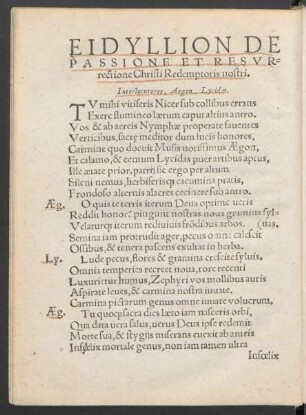 EIDYLLION DE
PASSIONE ET RESVR-
rectione Christi Redemptoris nostri.
Interlocutores, Aegon, Lycidas.
TV mihi vitiferis Nicer sub collibus errans
Exere flumineo lætum caput altius antro.
Vos & ab aereis Nymphæ properate fluentes
Verticibus, sacrę meditor dum lucis honores,
Carmine quo docuit Musis notissimus Ægon,
Et calamo, & centum Lycidas puer artibus aptus,
Ille ætate prior. partiri sic ergo per altum
Sileni nemus, herbiferisq; cacumina pratis,
Frondoso alternis alacres cecinere sub antro.
Æg. O quis te terris iterum Deus optime veris
Reddit honor? pingunt nostras noua gramina syl-
Velatur q; iterum rediuiuis frōdibus arbos. (uas,
Semina iam protrudit ager, pecus omne calescit
Ossibus, & tenera pascens exultat in herba.
Ly. Lude pecus, flores & gramina crescite syluis,
Omnia temperies recreet noua, rore recenti
Luxurietur humus, Zephyri vos mollibus auris
Aspirate leues, & carmina nostra iuuate.
Carmina pictarum genus omne iuuate volucrum,
Æg. Tu quoq; sacra dies læto iam nasceris orbi,
Qua data vera salus, uerus Deus ipse redemit
Morte sua, & stygijs miserans euexit ab antris
Infœlix mortale genus, non iam tamen ultra
Infœlix